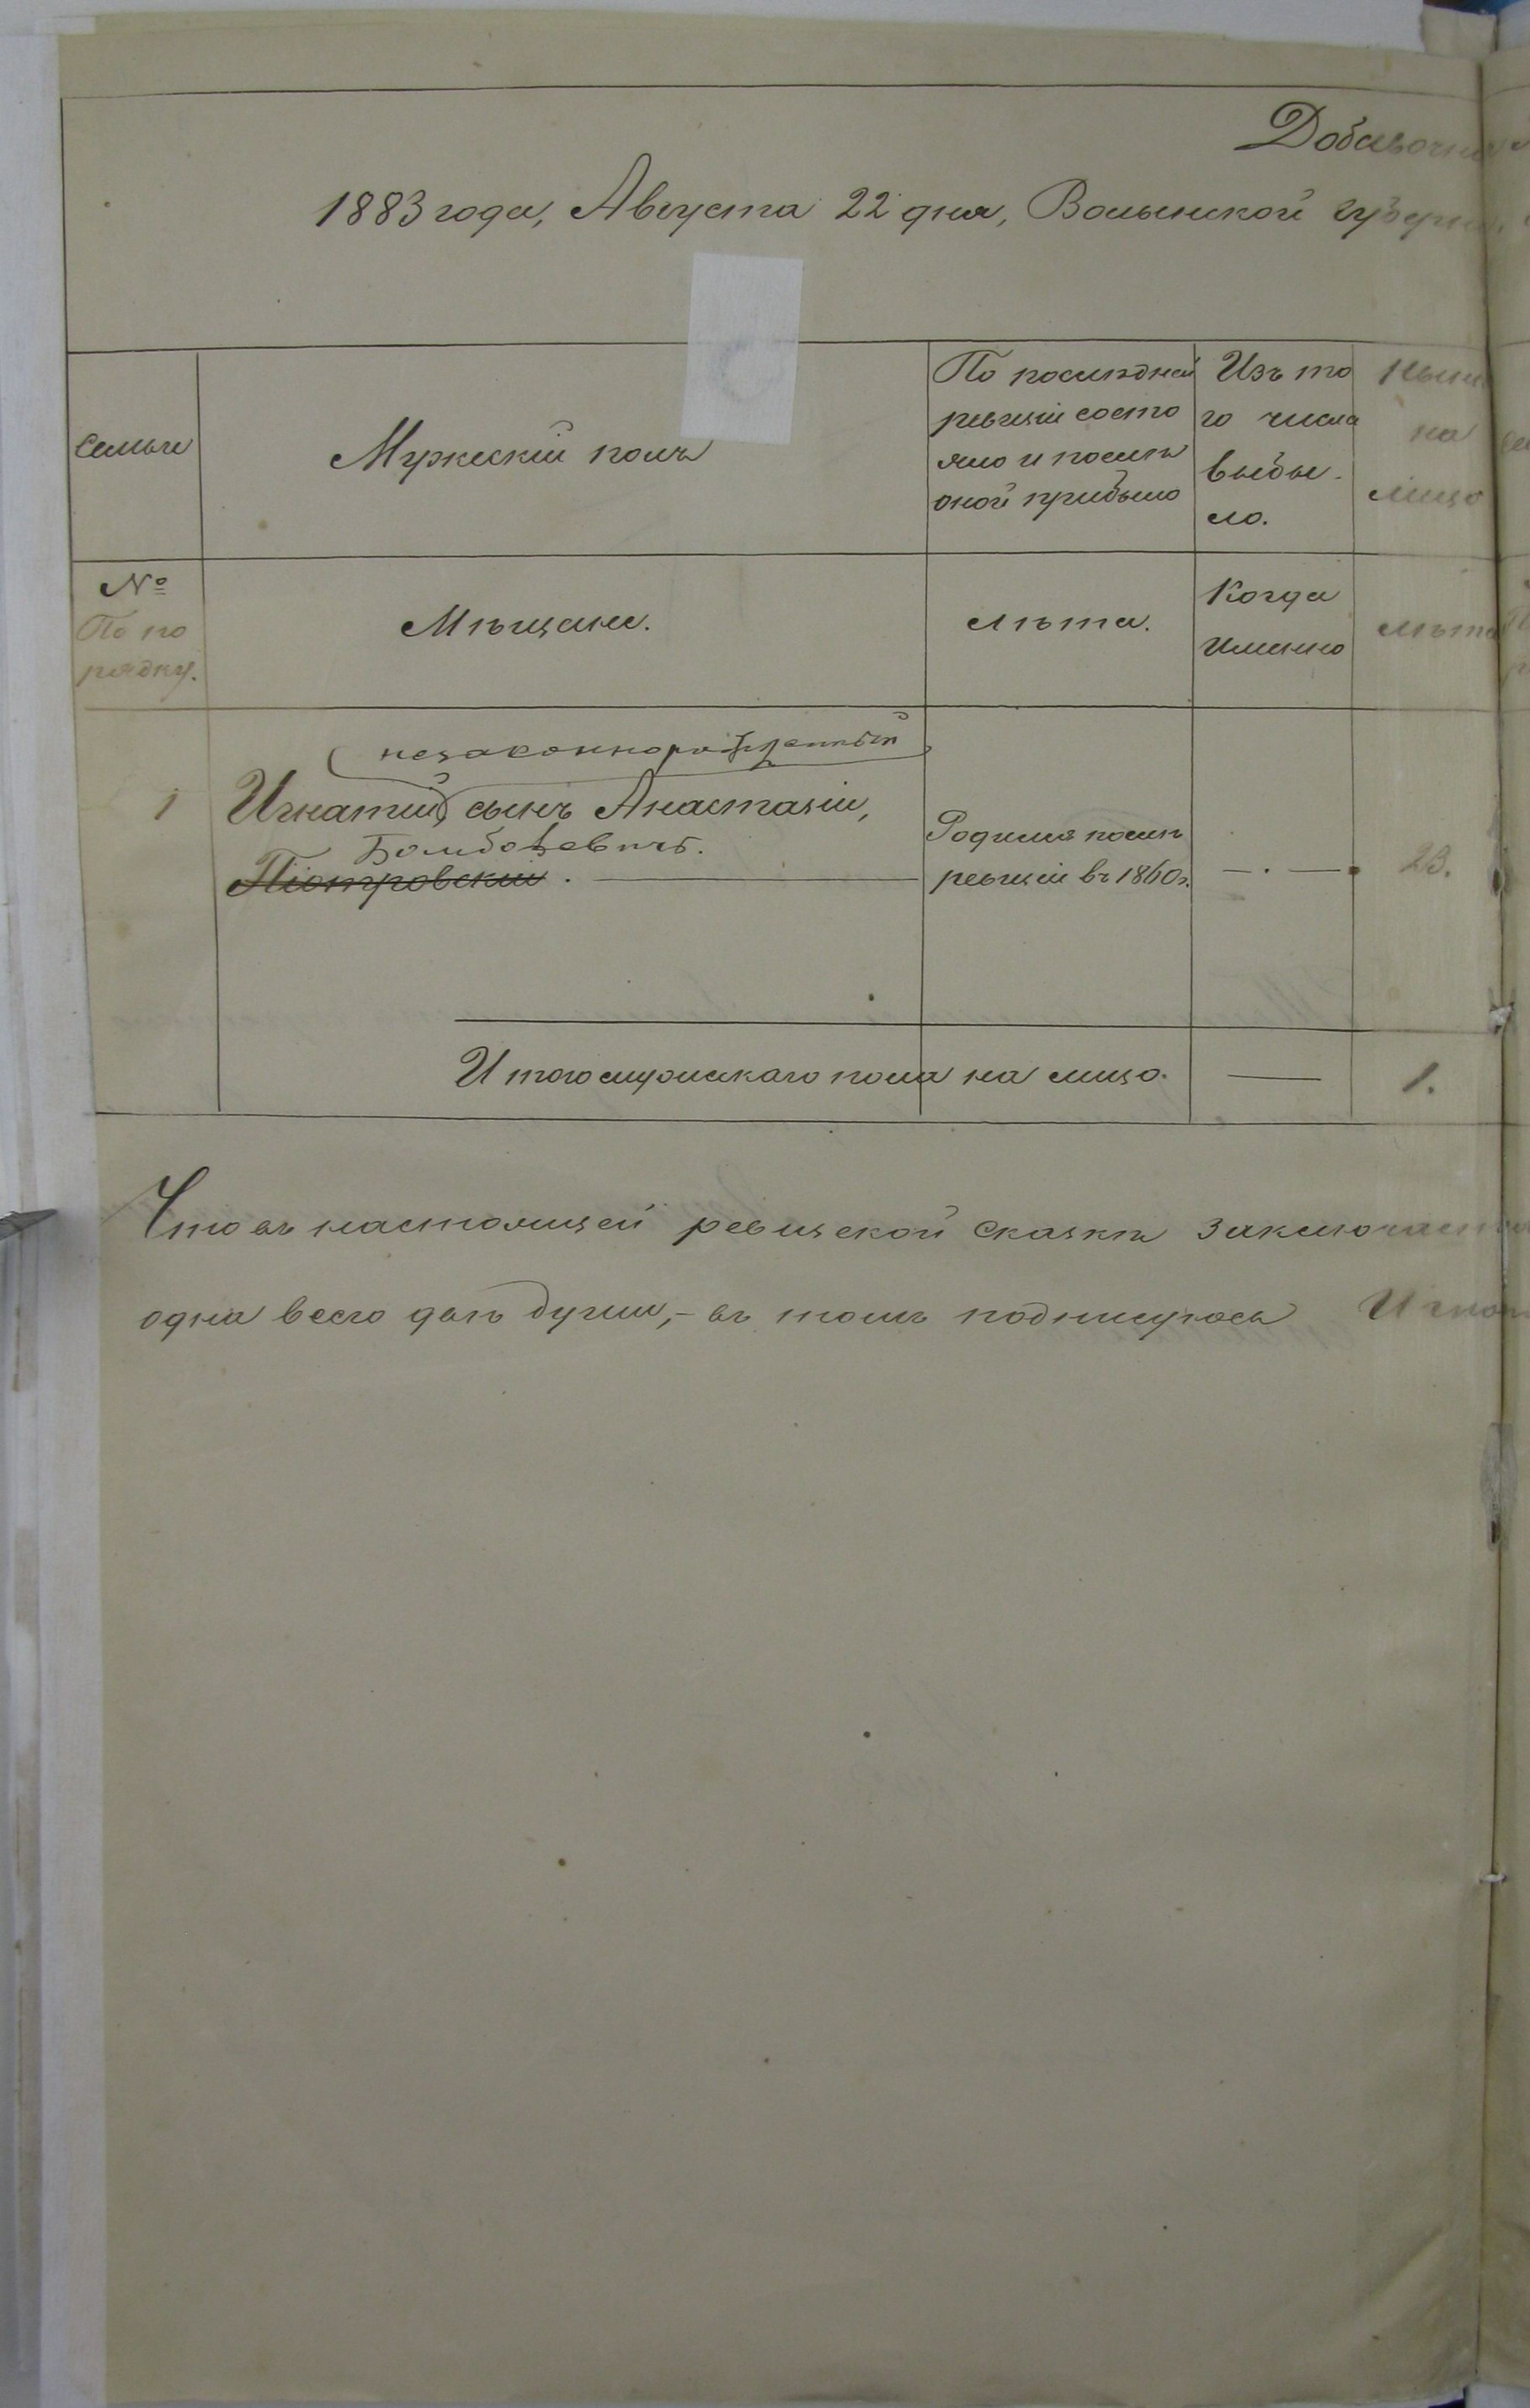 Добавочная
1883 года, Августа 22 дня, Волынской губерніи,
Семьи
Мужескій полъ
По последней
ревизіи состо
яло и послѣ
оной прибыло
Изъ то
го числа
выбы-
ло.
Нынѣ
на
лицо
№
По по
рядку.
Мѣщане.
лѣта.
Когда
именно
лѣта
незаконнорожденный
1 Игнатий, сынъ Анастазіи,
Піотровскій.
Родился послѣ
ревизіи въ 1860 г.
23.
Итого мужескаго пола на лицо. 1.
Что въ настоящей ревизской сказкѣ заключается
одна всего двѣ души, - въ томъ подписуюсь